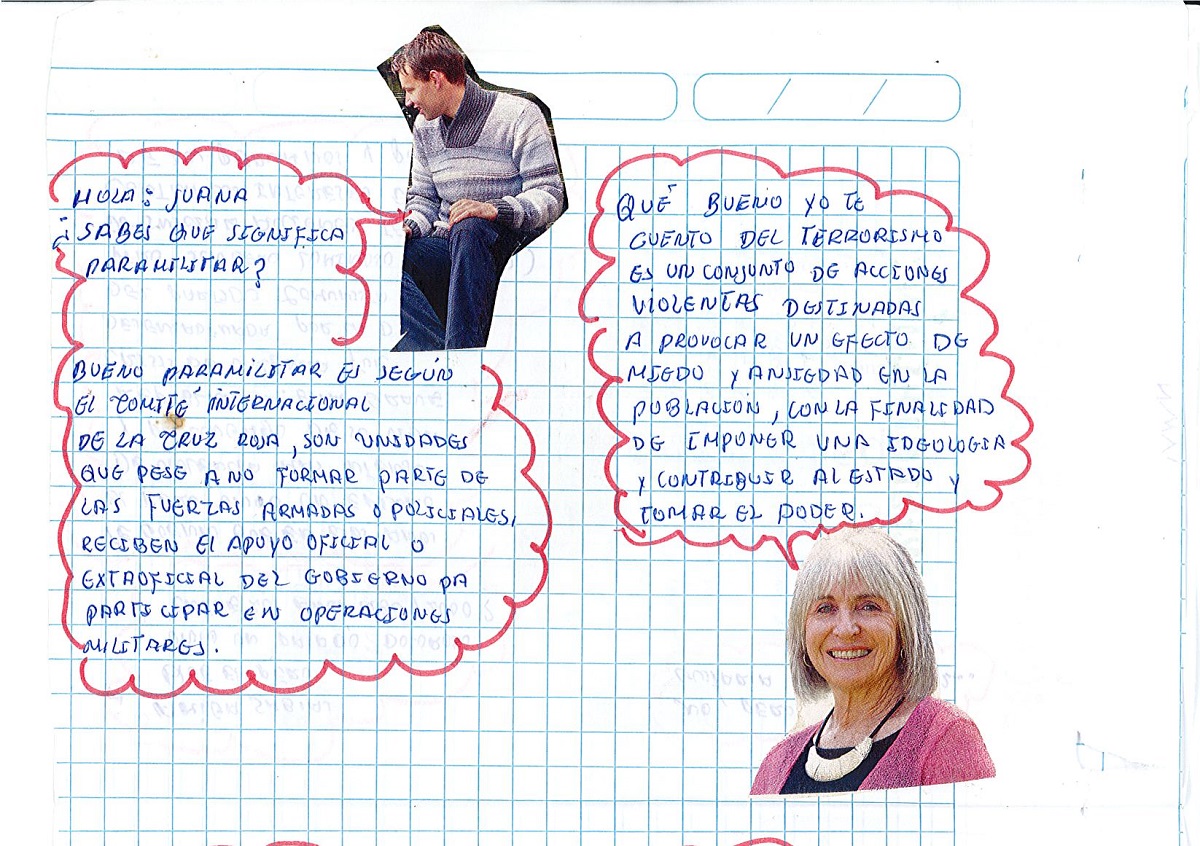 HOLA: JUANA
¿SABES QUE SIGNIFICA
PARAMILITAR?
BUENO PARAMILITAR ES SEGÚN
EL COMITÉ INTERNACIONAL
DE LA CRUZ ROJA, SON UNIDADES
QUE PESE A NO FORMAR PARTE DE
LAS FUERZAS ARMADAS O POLICIALES,
RECIBEN EL APOYO OFICIAL O
EXTAOFICIAL DEL GOBIERNO PA
PARTICIPAR EN OPERACIONES
MILITARES.
QUÉ BUENO YO TE
CUENTO DEL TERRORISMO
ES UN CONJUNTO DE ACCIONES
VIOLENTAS DESTINADAS
A PROVOCAR UN EFECTO DE
MIEDO Y ANSIEDAD EN LA
POBLACION, CON LA FINALIDAD
DE IMPONER UNA IDEOLOGIA
Y CONTRIBUIR AL ESTADO Y
TOMAR EL PODER.